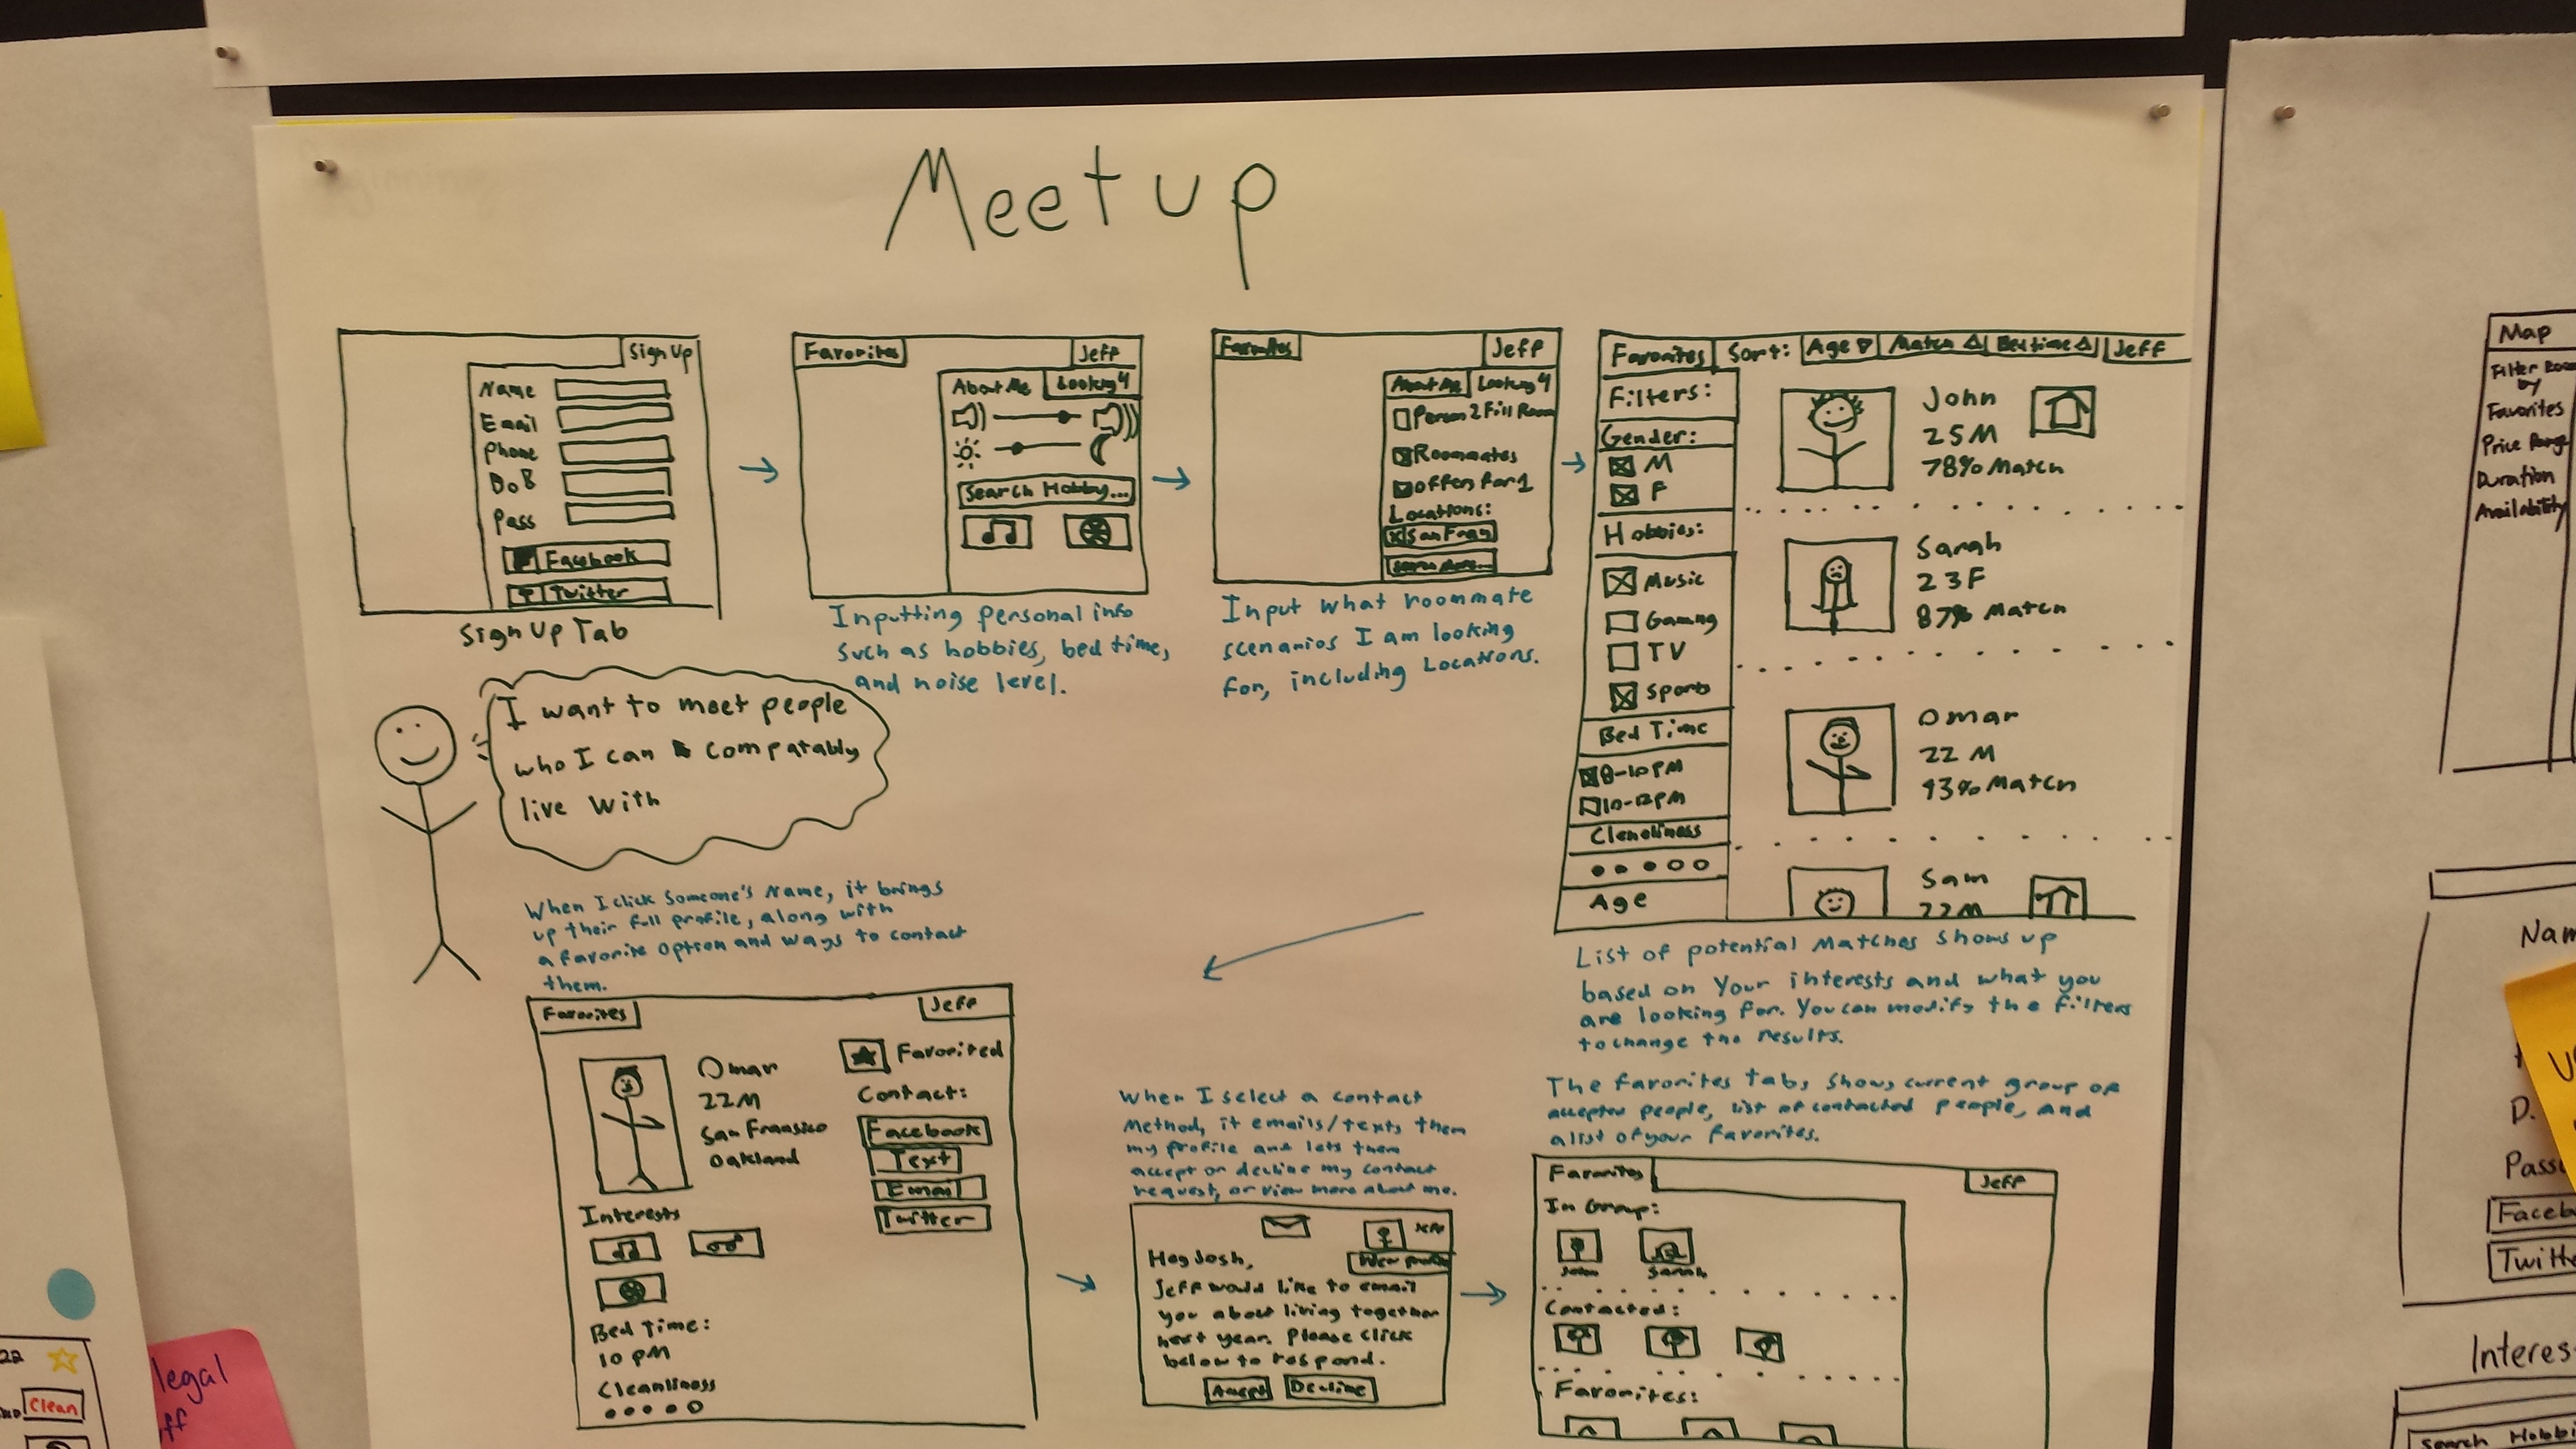 Meetup
Sign Up
Name
Email
Phone
DoB
Pass
Facebook
Twitter
Sign Up Tab
Favorites
Jeff
About Me
Looking 4
Search Hobby...
Inputting personal info
such as hobbies, bed time,
and noise level.
Favorites
Jeff
About Me
Looking 4
Person 2 Fill Room
Roommates
Locations:
San Fran
Input what roommate
scenarios I am looking
for, including Locations.
Favorites
Sort:
Age
Match
Bedtime
Jeff
Filters:
Gender:
M
F
Hobbies:
Music
Gaming
TV
Sports
Bed Time
8-10PM
10-12PM
Clenoliness
Age
John
25M
78% Match
Sarah
23F
87% Match
Omar
22 M
93% Match
Sam
22M
List of potential Matches Shows up
based on Your interests and what you
are looking for. You can modify the filters
to change the results.
I want to meet people
who I can compatably
live with
When I click Someone's Name, it brings
up their full profile, along with
a favorite option and ways to contact
them.
Favorites
Jeff
Omar
22M
San Fransisco
Oakland
Favorited
Contact:
Facebook
Text
Email
Twitter
Interests
Bed Time:
10 PM
Cleanliness
When I select a contact
Method, it emails/texts them
my profile and lets them
accept or decline my contact
request, or view more about me.
Jeff
View profile
Hey Josh,
Jeff would like to email
you about living together
next year. Please click
below to respond.
Accept
Decline
The favorites tabs shows current group of
accepted people, list of contacted people, and
a list of your favorites.
Favorites
Jeff
In Group:
John
Sarah
Contacted:
Favorites:
Map
Filter Room
by
Favorites
Price Range
Duration
Availability
Nam
D.
Passw
Faceb
Twitte
Interes
Search Hobbi
legal
ff
22
Clean